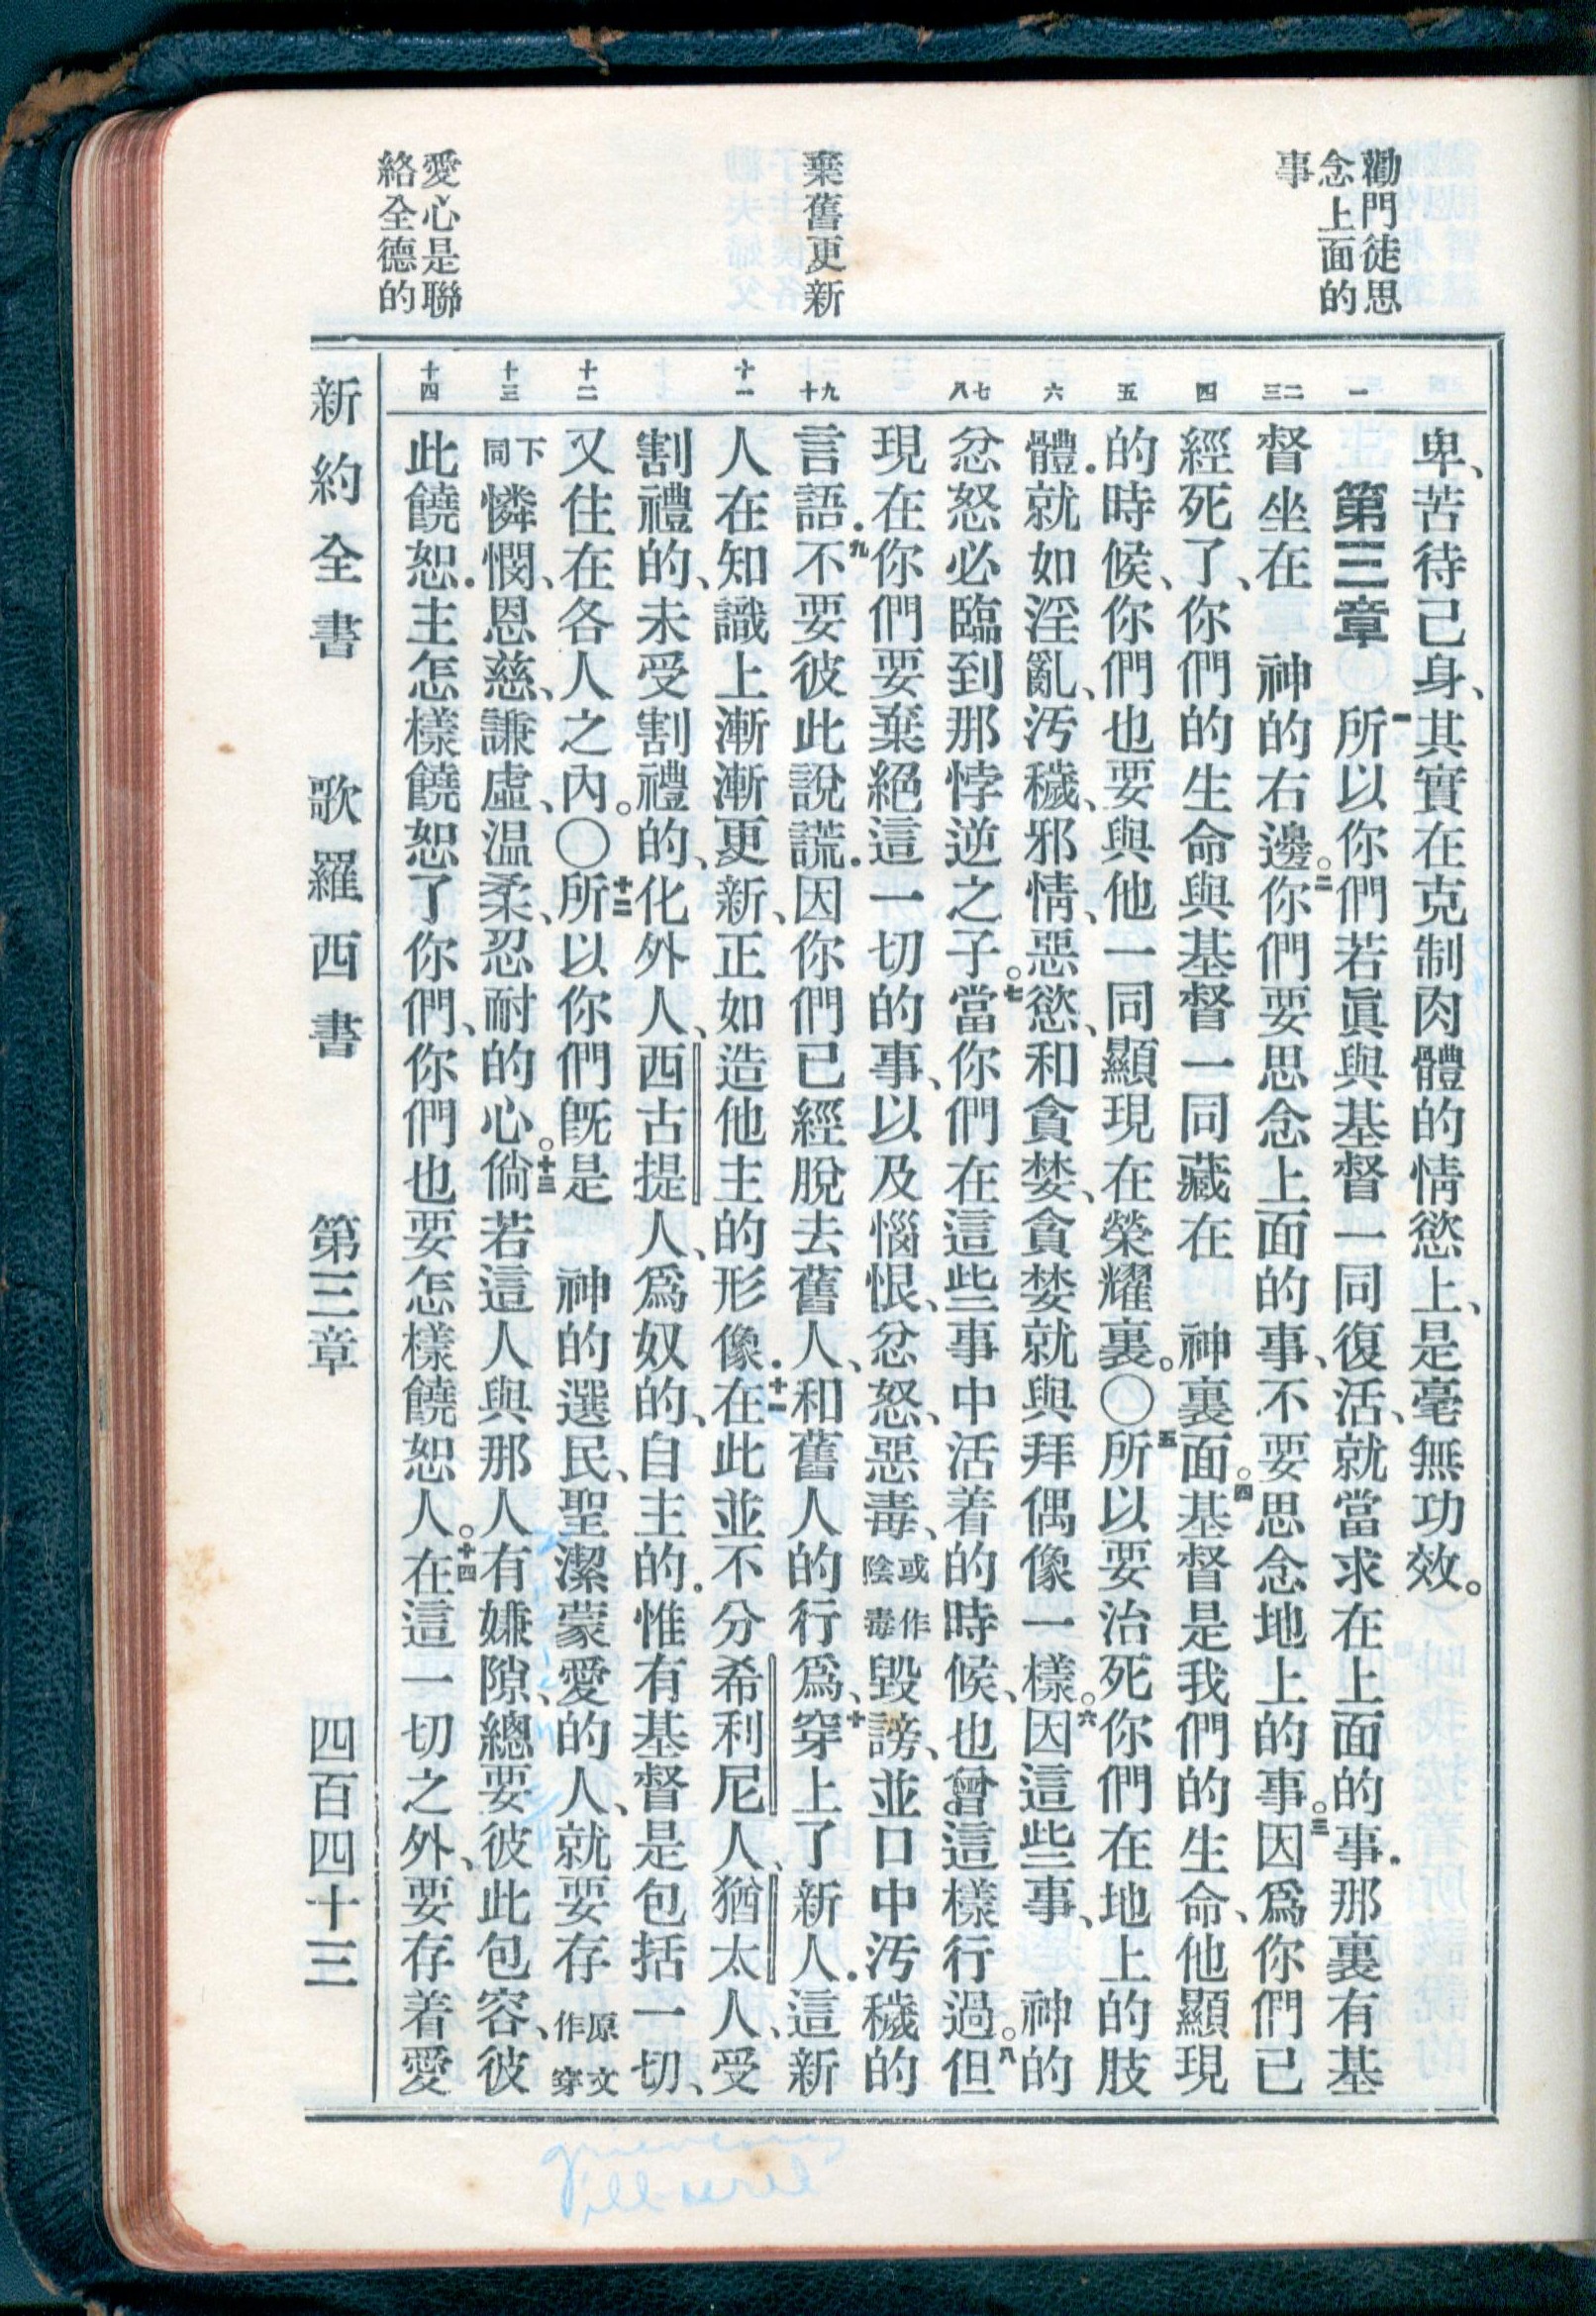 勸門徒思
念上面的
事
棄舊更新
愛心是聯
絡全德的
一
二三
四
五
六
七八
九十
十一
十二
十三
十四
卑、苦待己身、其實在克制肉體的情慾上、是毫無功效。
第三章 一所以你們若眞與基督一同復活、就當求在上面的事．那裏有基
督坐在 神的右邊。二你們要思念上面的事、不要思念地上的事。三因爲你們已
經死了、你們的生命與基督一同藏在 神裏面。四基督是我們的生命、他顯現
的時候、你們也要與他一同顯現在榮耀裏。〇五所以要治死你們在地上的肢
體．就如淫亂、污穢、邪情、惡慾、和貪婪、貪婪就與拜偶像一樣。六因這些事、 神的
忿怒必臨到那悖逆之子。七當你們在這些事中活着的時候、也曾這樣行過。八但
現在你們要棄絕這一切的事、以及惱恨、忿怒、惡毒、或作陰毒毀謗、並口中污穢的
言語．九不要彼此說謊．因你們已經脫去舊人、和舊人的行爲、十穿上了新人．這新
人在知識上漸漸更新、正如造他主的形像．十一在此並不分希利尼人、猶太人、受
割禮的、未受割禮的、化外人、西古提人、爲奴的、自主的．惟有基督是包括一切、
又住在各人之內。〇十二所以你們旣是 神的選民、聖潔蒙愛的人、就要存原文作穿
下同憐憫、恩慈、謙虛、温柔、忍耐的心。十三倘若這人與那人有嫌隙、總要彼此包容、彼
此饒恕．主怎樣饒恕了你們、你們也要怎樣饒恕人。十四在這一切之外、要存着愛
新約全書 歌羅西書 第三章 四百四十三